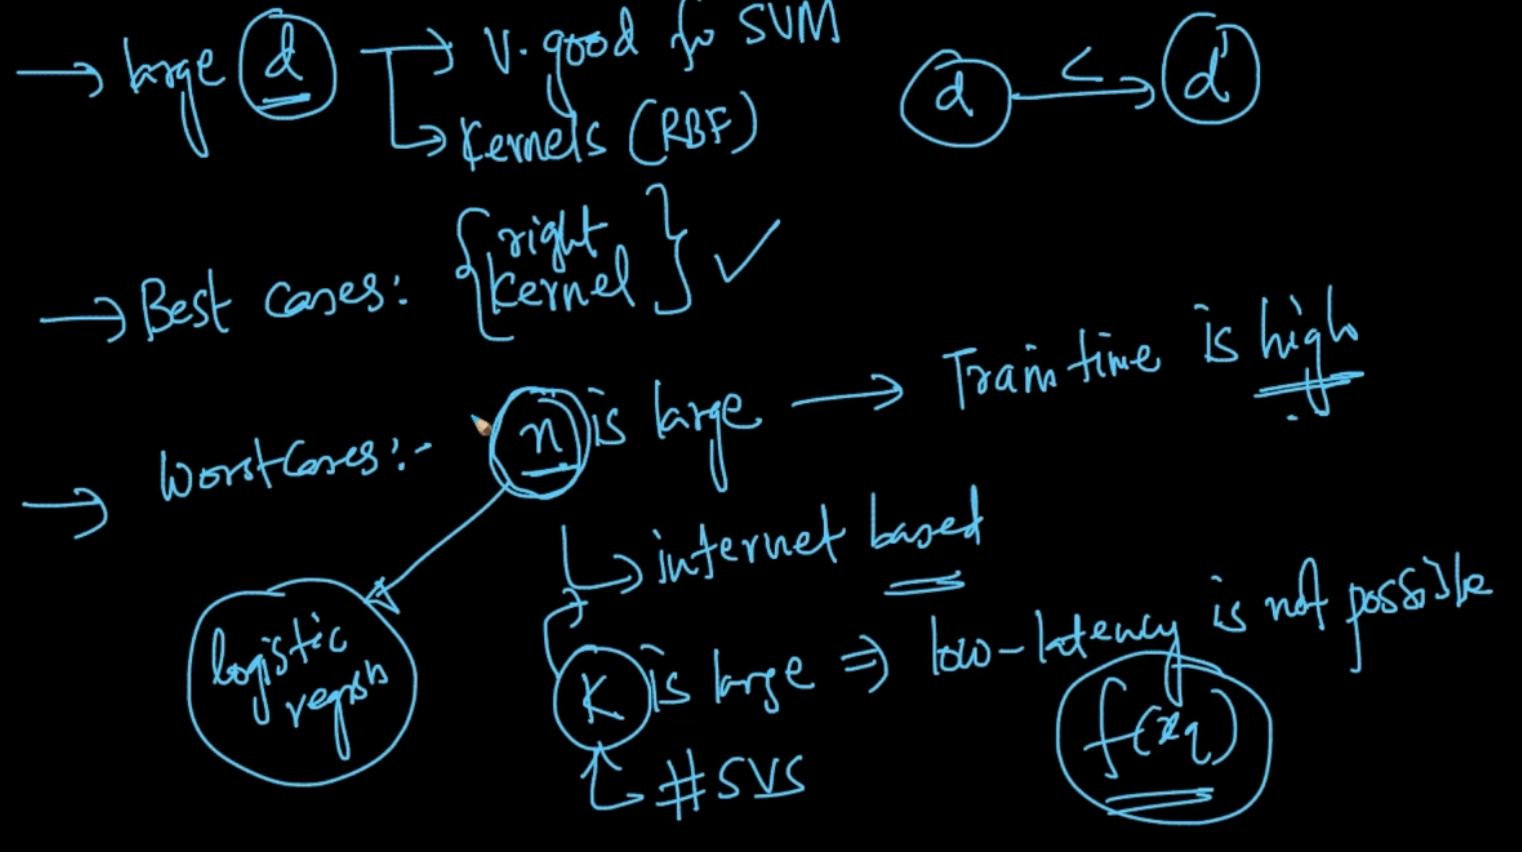 → large d → V. good for SVM
→ Kernels (RBF)
d < → d'
→ Best Cases: { right kernel } ✓
→ Worst Cases:- n is large → Train time is high
↳ internet based
logistic
K is large ⇒ low-latency is not possible
f(xq)
↳ #SVS